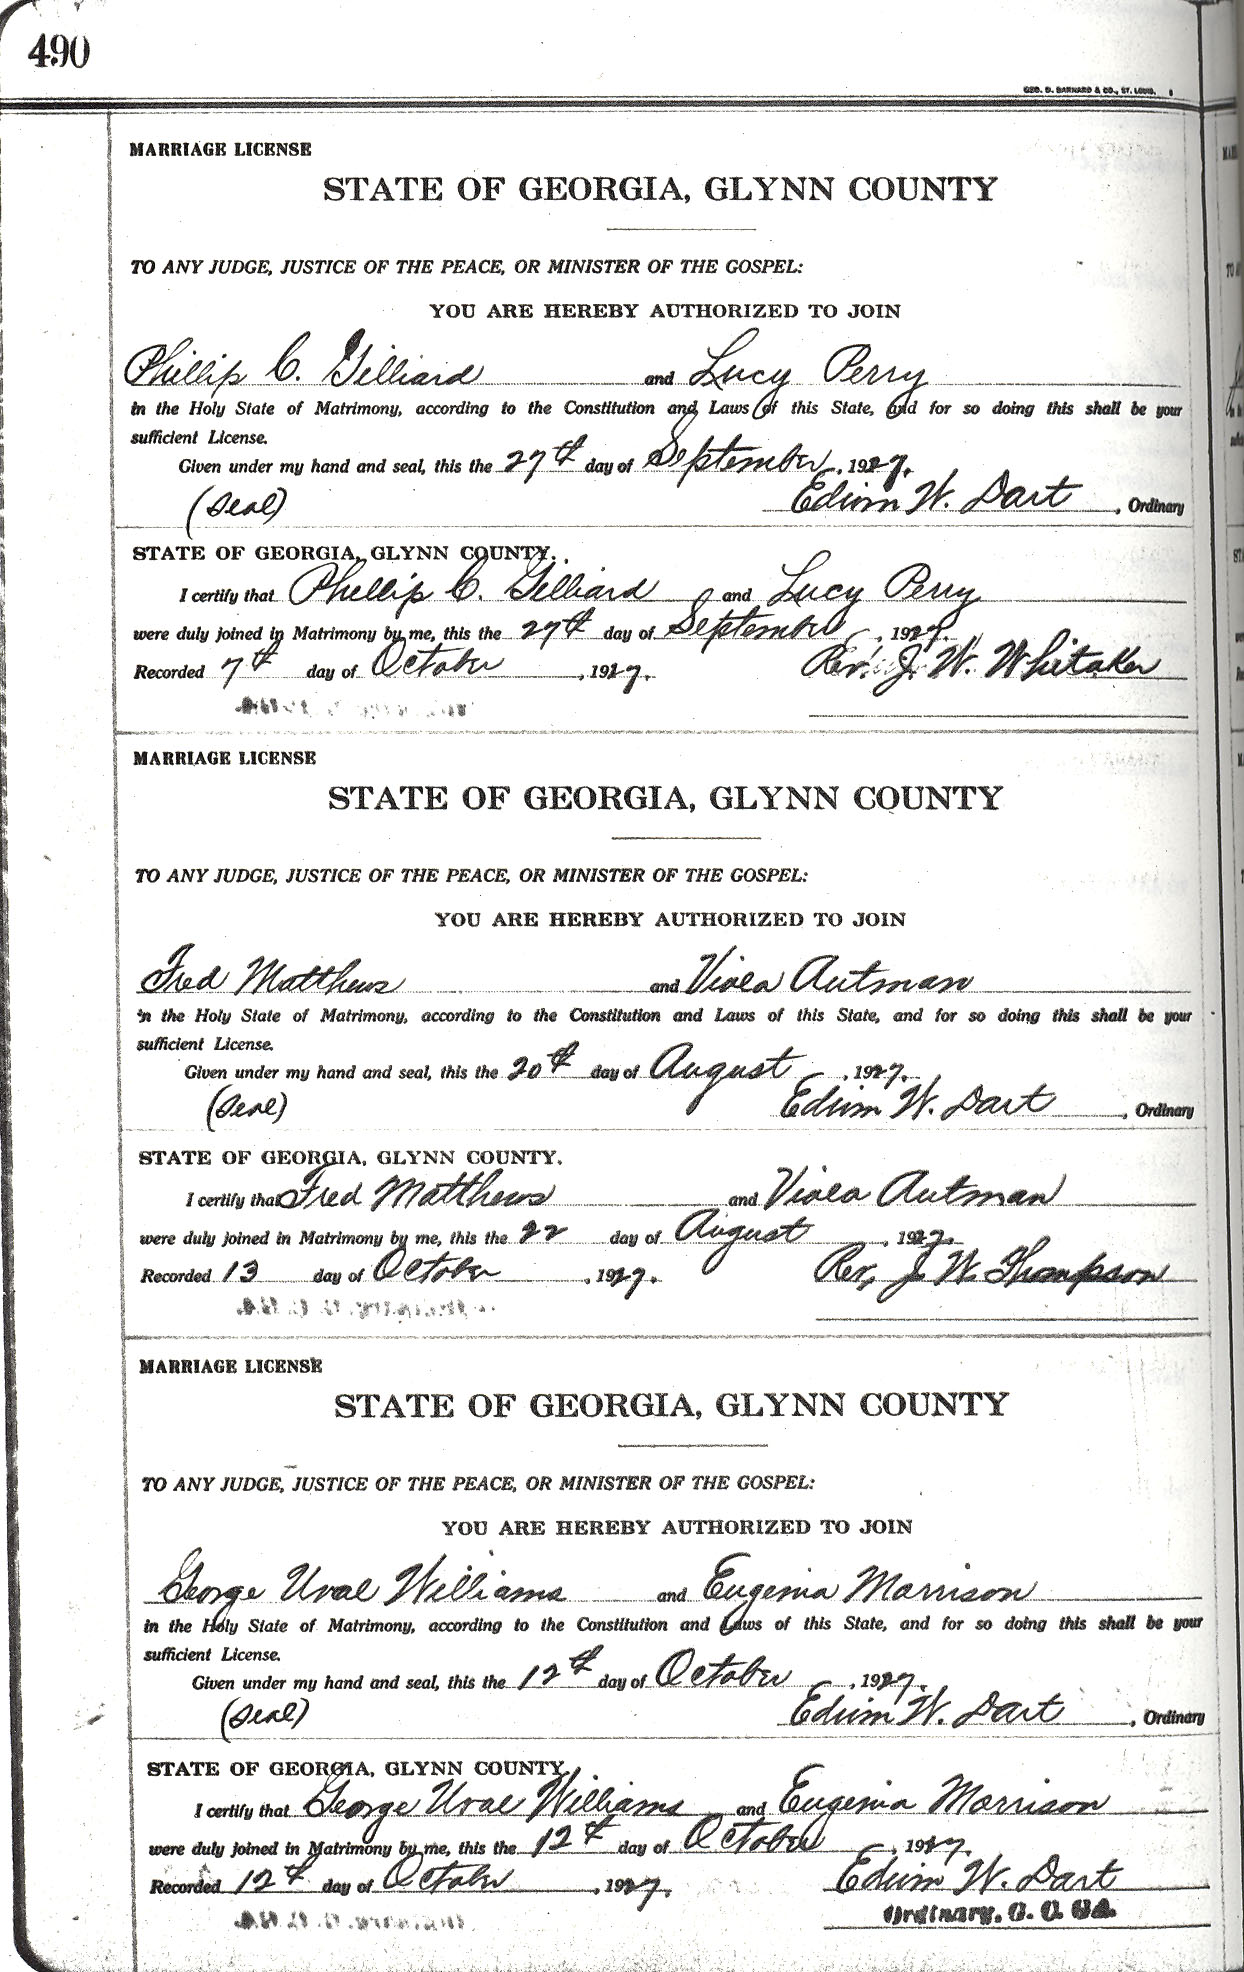 490
GEO. D. BARNARD & CO., ST. LOUIS.
MARRIAGE LICENSE
STATE OF GEORGIA, GLYNN COUNTY
TO ANY JUDGE, JUSTICE OF THE PEACE, OR MINISTER OF THE GOSPEL:
YOU ARE HEREBY AUTHORIZED TO JOIN
Phillip C. Gilliard and Lucy Perry
in the Holy State of Matrimony, according to the Constitution and Laws of this State, and for so doing this shall be your
sufficient License.
Given under my hand and seal, this the 27th day of September, 1927.
(Seal) Edwin W. Dart, Ordinary
STATE OF GEORGIA, GLYNN COUNTY.
I certify that Phillip C. Gilliard and Lucy Perry
were duly joined in Matrimony by me, this the 27th day of September, 1927.
Recorded 7th day of October, 1927. Rev. J. W. Whitaker
MARRIAGE LICENSE
STATE OF GEORGIA, GLYNN COUNTY
TO ANY JUDGE, JUSTICE OF THE PEACE, OR MINISTER OF THE GOSPEL:
YOU ARE HEREBY AUTHORIZED TO JOIN
Fred Matthews and Viola Autman
in the Holy State of Matrimony, according to the Constitution and Laws of this State, and for so doing this shall be your
sufficient License.
Given under my hand and seal, this the 20th day of August, 1927.
(Seal) Edwin W. Dart, Ordinary
STATE OF GEORGIA, GLYNN COUNTY.
I certify that Fred Matthews and Viola Autman
were duly joined in Matrimony by me, this the 22 day of August, 1927.
Recorded 13 day of October, 1927. Rev. J W. Thompson
MARRIAGE LICENSE
STATE OF GEORGIA, GLYNN COUNTY
TO ANY JUDGE, JUSTICE OF THE PEACE, OR MINISTER OF THE GOSPEL:
YOU ARE HEREBY AUTHORIZED TO JOIN
George Uval Williams and Eugenia Morrison
in the Holy State of Matrimony, according to the Constitution and Laws of this State, and for so doing this shall be your
sufficient License.
Given under my hand and seal, this the 12th day of October, 1927.
(Seal) Edwin W. Dart, Ordinary
STATE OF GEORGIA, GLYNN COUNTY.
I certify that George Uval Williams and Eugenia Morrison
were duly joined in Matrimony by me, this the 12th day of October, 1927.
Recorded 12th day of October, 1927. Edwin W. Dart
Ordinary, G. C. GA.